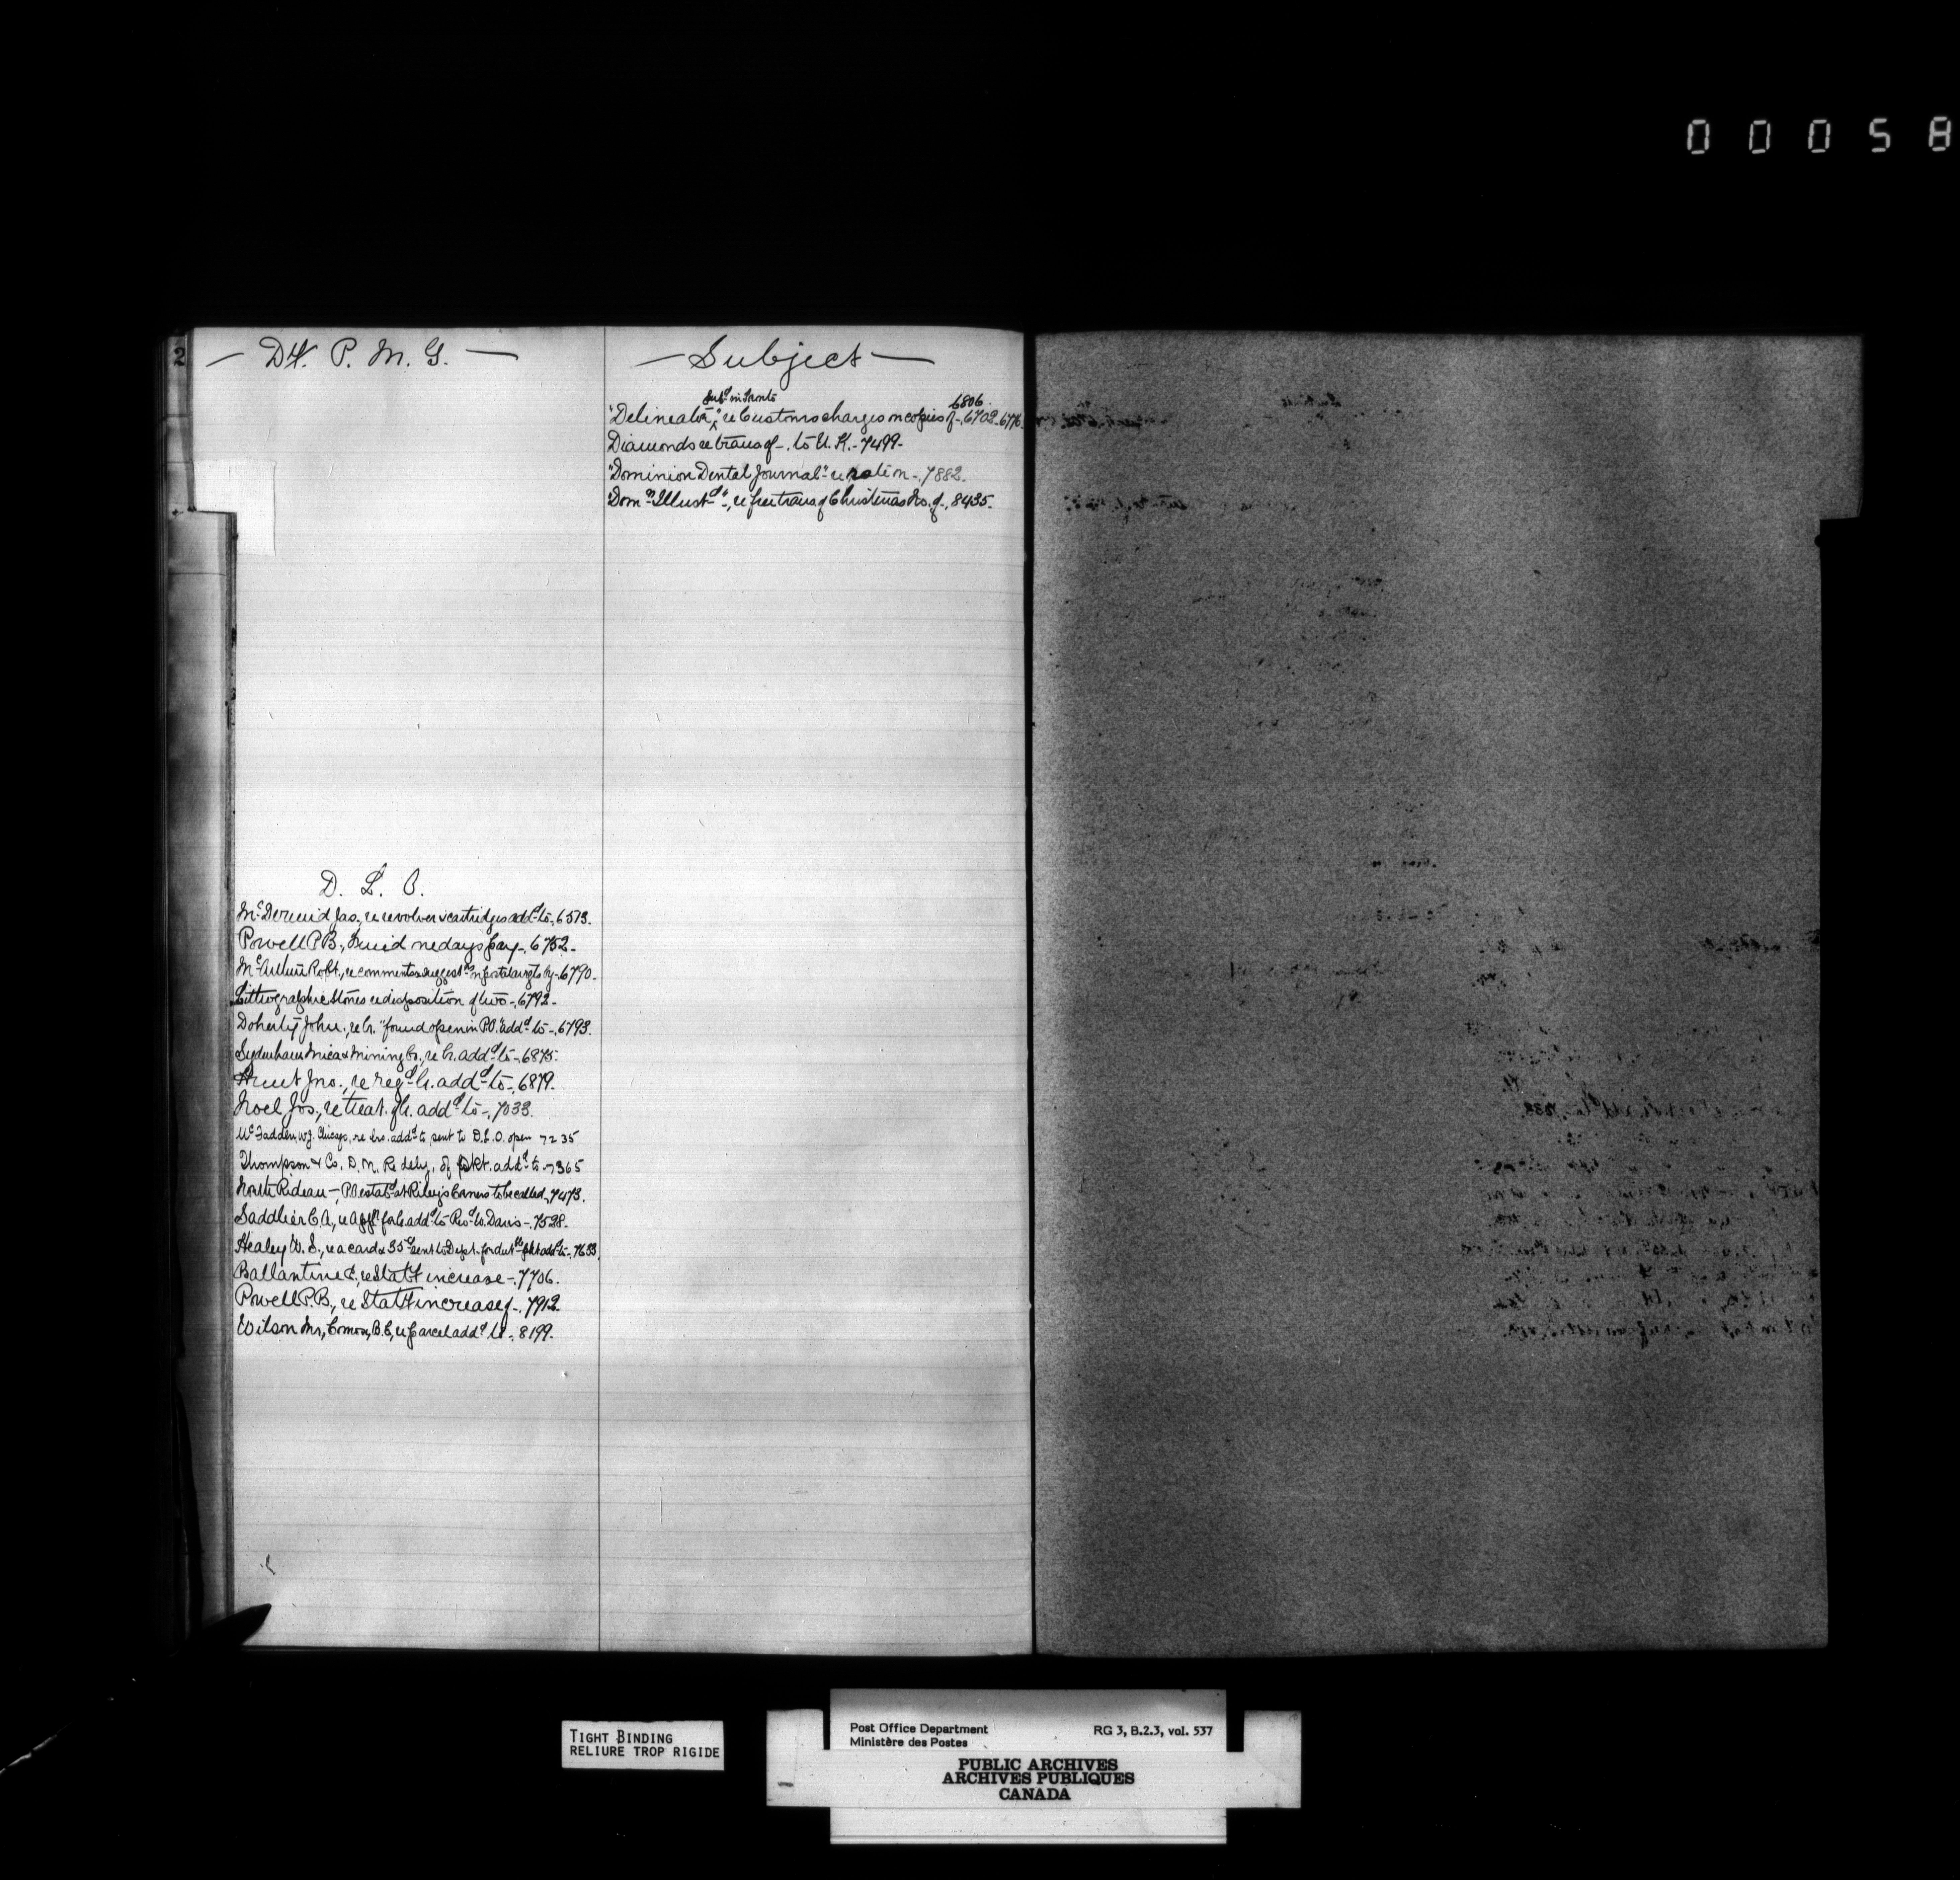 00058
2
— Dy. P. M. G. —
— Subject —
Subd in Toronto
6806.
"Delineator," re Customs charges on copies of -, 6702. 6776
Diamonds re trans of -. to U. K. - 7499 -
"Dominion Dental Journal" re - 7882.
"Domn Illustd", re free trans of Christmas No. of -, 8435.
D. L. O.
McDermid Jas., re revolver & cartridges addd to -, 6513.
Powell P.B., re days pay -, 6752 -
McArthur Robt., re comments & suggestns by - 6790 -
Lithographic Stones re disposition of two -, 6792 -
Doherty John, re lr. "found open in P.O." addd to -, 6793.
Sydenham Mica & Mining Co., re lr. addd to -, 6875.
Hunt Jno., re regd lr. addd to -, 6879.
Noel Jos., re treat. of lr. addd to -, 7033.
McFadden, W.J. Chicago, re lrs. addd to, sent to D.L.O. open 7235
Thompson & Co. D. N. Re dely. of pkt. addd to - 7365
North Rideau -, P.O. estabd at Riley's Corners to be called, 7473.
Saddlier C. A., re appn for lr. addd to Davis -. 7528 -
Healey W. S., re a card & 35c sent to Dept. for dut pkt addd to -, 7633.
Ballantine E., re Stat. increase -. 7706.
Powell P.B., re Stat. increase of -. 7912.
Wilson Mr, Comox, B.C, re parcel addd to -, 8199.
TIGHT BINDING
RELIURE TROP RIGIDE
Post Office Department
Ministère des Postes
RG 3, B.2.3, vol. 537
PUBLIC ARCHIVES
ARCHIVES PUBLIQUES
CANADA